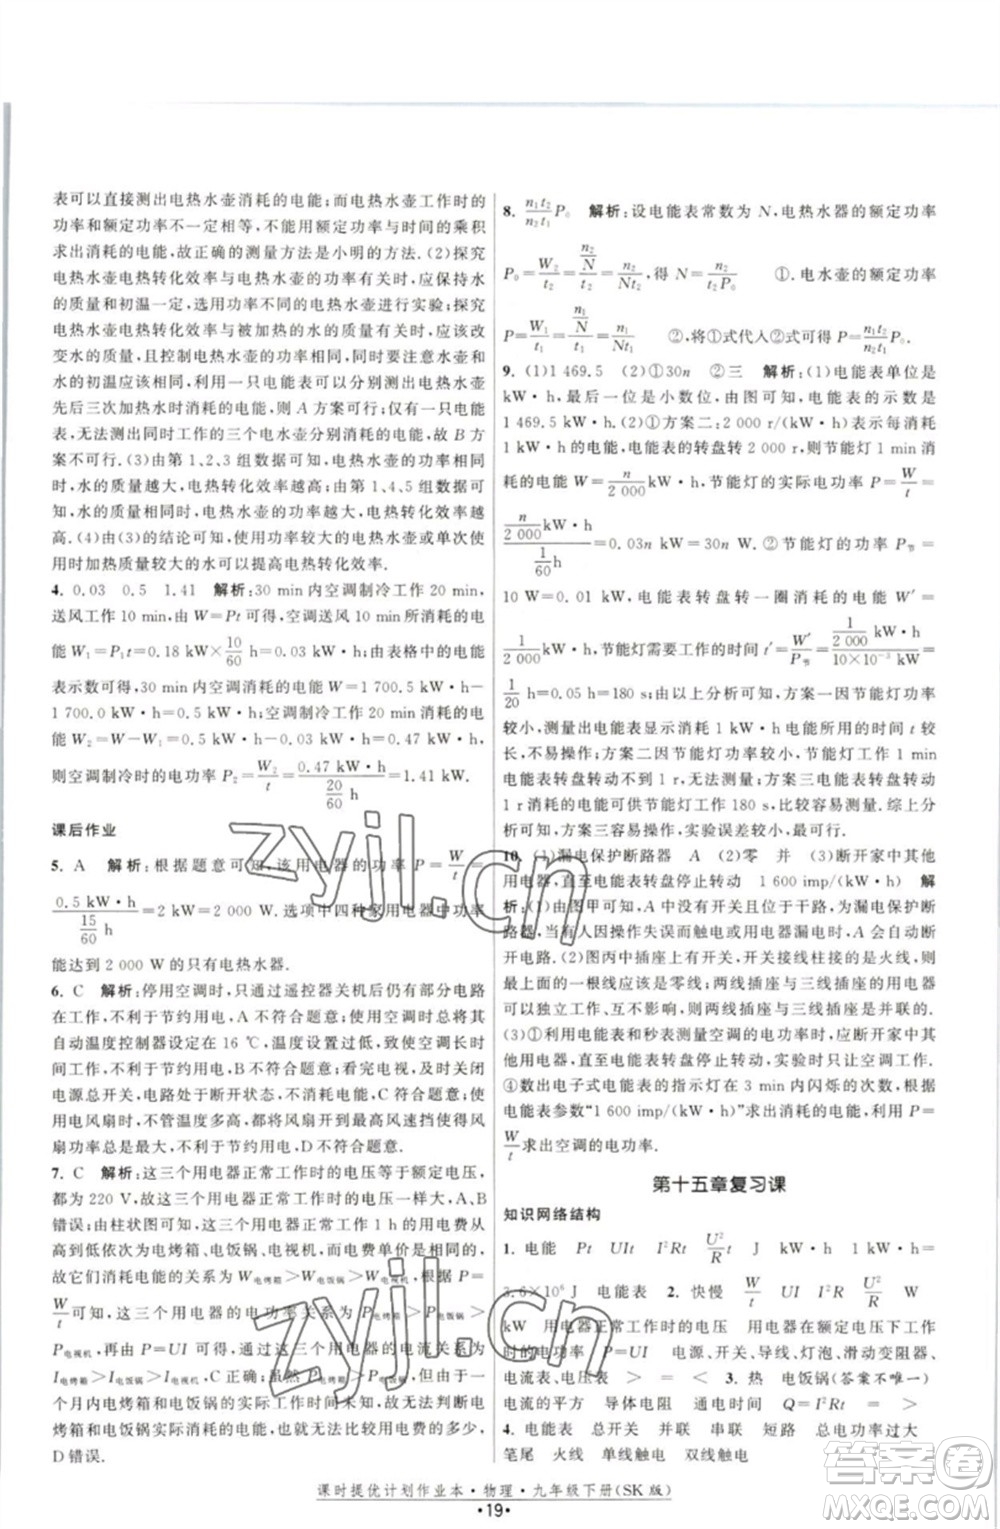 表可以直接测出电热水壶消耗的电能;而电热水壶工作时的
功率和额定功率不一定相等,不能用额定功率与时间的乘积
求出消耗的电能,故正确的测量方法是小明的方法.(2)探究
电热水壶电热转化效率与电热水壶功率的关系时,应保持水
的质量和初温一定,选用功率不同的电热水壶进行实验;探究
电热水壶电热转化效率与被加热的水的质量有关时,应该改
变水的质量,且控制电热水壶的功率相同,同时要注意水壶和
水的初温应该相同,利用一只电能表可以分别测出电热水壶
先后三次加热水时消耗的电能,则 A 方案可行;仅有一只电能
表,无法测出同时工作的三个电水壶分别消耗的电能,故 B 方
案不可行.(3)由第 1、2、3 组数据可知,电热水壶的功率一定
时,水的质量越大,电热转化效率越高;由第 1、4、5 组数据可
知,水的质量一定时,电热水壶的功率越大,电热转化效率越
高.(4)由(3)的结论可知,在水壶容量允许范围内,适当增加水
的质量或选择功率较大的电热水壶可以提高电热转化效率.
4. 0.03 0.5 1.41 解析:30 min内空调制冷工作 20 min,
送风工作 10 min,由 W=Pt 可得,空调送风 10 min 所消耗的电
能 W₁=P₁t=0.18 kW×10/60 h=0.03 kW·h;由表格中的电能
表示数可得,30 min 内空调消耗的电能 W=1 700.5 kW·h-
1 700.0 kW·h=0.5 kW·h;空调制冷工作 20 min 消耗的电
能 W₂=W-W₁=0.5 kW·h-0.03 kW·h=0.47 kW·h,
则空调制冷时的电功率 P₂=W₂/t=(0.47 kW·h)/(20/60 h)=1.41 kW.
课后作业
5. A 解析:根据题意可知,该用电器的功率 P=W/t=
(0.5 kW·h)/(15/60 h)=2 kW=2 000 W.选项中四种家用电器中功率
能达到 2 000 W 的只有电热水器.
6. C 解析:停用空调时,只通过遥控器关机后仍有部分电路
在工作,不利于节约用电,A 不符合题意;使用空调时,将其
自动温度控制器设定在 16 ℃,温度设置过低,空调制冷时间
长,功率大,不利于节约用电,B 不符合题意;看完电视,及时关闭
电源总开关,电路处于断开状态,不消耗电能,C 符合题意;使
用电风扇时,不管温度多高,都将风速开到最高风速挡的电风
扇功率总是最大,不利于节约用电,D 不符合题意.
7. C 解析:这三个用电器正常工作时的电压等于额定电压,
都为 220 V,故这三个用电器正常工作时的电压一样大,A、B
错误;由柱状图可知,这三个用电器正常工作 1 h 的用电费从
大到小依次为电烤箱、电饭锅、电视机,则正常工作相同时间,
它们消耗电能的关系为 W电烤箱>W电饭锅>W电视机,根据 P=
W/t 可知,这三个用电器的电功率关系为 P电烤箱>P电饭锅>
P电视机,再由 P=UI 可知,这三个用电器的电流关系为
I电烤箱>I电饭锅>I电视机,C 正确;虽然 P电烤箱>P电饭锅,但由于
一个月内电烤箱和电饭锅的实际工作时间未知,故无法判断电
烤箱和电饭锅实际消耗电能的多少,无法比较使用电费的多少,
D 错误.
8. (n₁t₂)/(n₂t₁)P₀ 解析:设电能表常数为 N,电热水器的额定功率
P₀=W₂/t₂=(n₂/N)/t₂=n₂/(Nt₂),得 N=n₂/(t₂P₀) ①.电水壶的额定功率
P=W₁/t₁=(n₁/N)/t₁=n₁/(Nt₁) ②,将①式代入②式可得 P=(n₁t₂)/(n₂t₁)P₀.
9. (1)1 469.5 (2)①30n ②三 解析:(1)电能表单位是
kW·h,最后一位是小数位,由图可知,电能表的示数是
1 469.5 kW·h.(2)①方案二:2 000 r/(kW·h)表示每消耗
1 kW·h的电能,电能表的转盘转 2 000 r,则节能灯 1 min 消
耗的电能 W=n/2 000 kW·h,节能灯的实际电功率 P=W/t=
(n/2 000 kW·h)/(1/60 h)=0.03n kW=30n W.②节能灯的功率 P节=
10 W=0.01 kW,电能表转盘转一圈消耗的电能 W′=
1/2 000 kW·h,节能灯需要工作的时间 t′=W′/P节=(1/2 000)/(10×10⁻³) h=
1/20 h=0.05 h=180 s;由以上分析可知,方案一因节能灯功率
较小,测量出电能表显示消耗 1 kW·h 电能所用的时间 t 较
长,不易操作;方案二因节能灯功率较小,节能灯工作 1 min
电能表转盘转动不到 1 r,无法测量;方案三电能表转盘转动
1 r 消耗的电能可供节能灯工作 180 s,易于测量.综上分析,
方案三容易操作,实验误差较小,故最可行.
10. (1)漏电保护断路器 A (2)零 并 (3)断开家中其他
用电器,直至电能表转盘停止转动 1 600 imp/(kW·h) 解
析:(1)由图甲可知,A 中没有开关且位于干路,为漏电保护断
路器,当有人因操作失误而触电或用电器漏电时,A 会自动断
开电路.(2)图丙中插座上有开关,开关接线柱上的是火线,
则另一根线应该是零线;两线插座与三线插座所接用电器可
以独立工作、互不影响,则两线插座与三线插座是并联的.
(3)①利用电能表和秒表测量空调的电功率时,应断开家中其
他用电器,直至电能表转盘停止转动,实验时只让空调工作.
④数出电子式电能表的指示灯 1 min 内闪烁的次数,根据
电能表参数“1 600 imp/(kW·h)”求出消耗的电能,利用 P=
W/t 求出空调的电功率.
第十五章复习课
知识网络结构
1. 电能 Pt UIt I²Rt U²/R t J kW·h
3.6×10⁶ J 电能表 2. 快慢 W/t UI I²R U²/R W
kW 用电器正常工作时的电压 用电器在额定电压下工作
时的电功率 P=UI 电源、开关、导线、灯泡、滑动变阻器、
电流表、电压表 > > 3. 热 电饭锅(答案不唯一)
电流的平方 导体电阻 通电时间 Q=I²Rt =
4. 电能表 总开关 并联 串联 短路 总功率过大
笔尾 火线 单线触电 双线触电
课时提优计划作业本·物理·九年级下册(SK 版)
·19·
zyjl.cn
zyjl.cn
答案圈
MXQE.COM